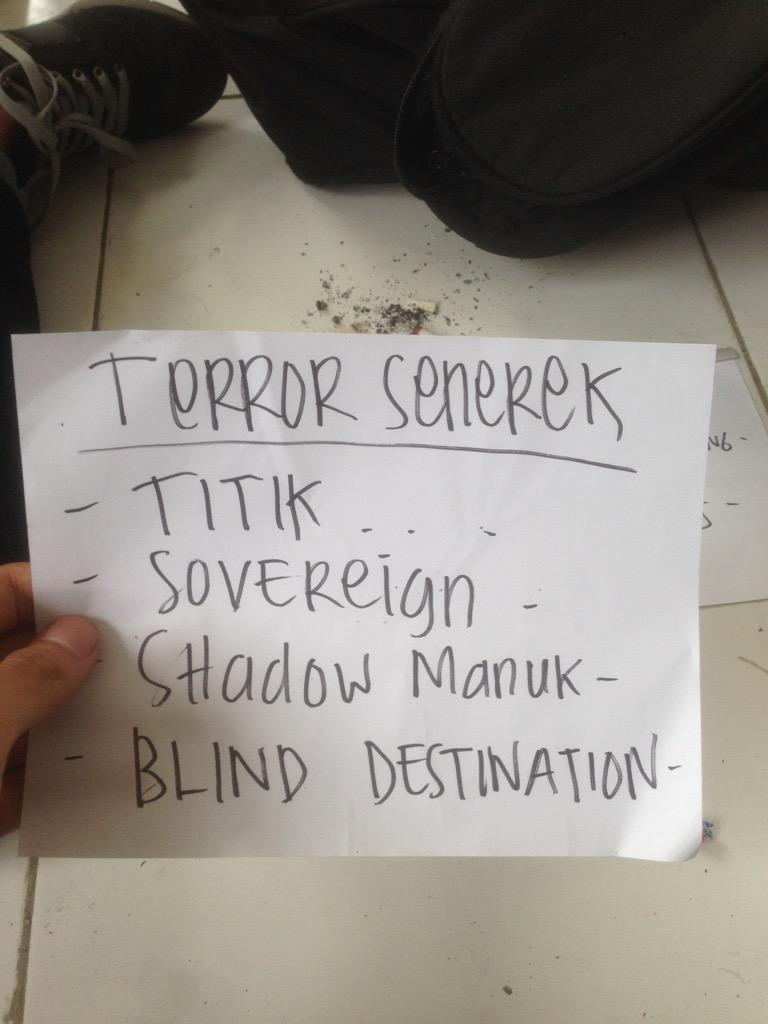 TERROR SENEREK
- TITIK . . . .
- SOVEREIGN -
- SHADOW MANUK -
- BLIND DESTINATION -